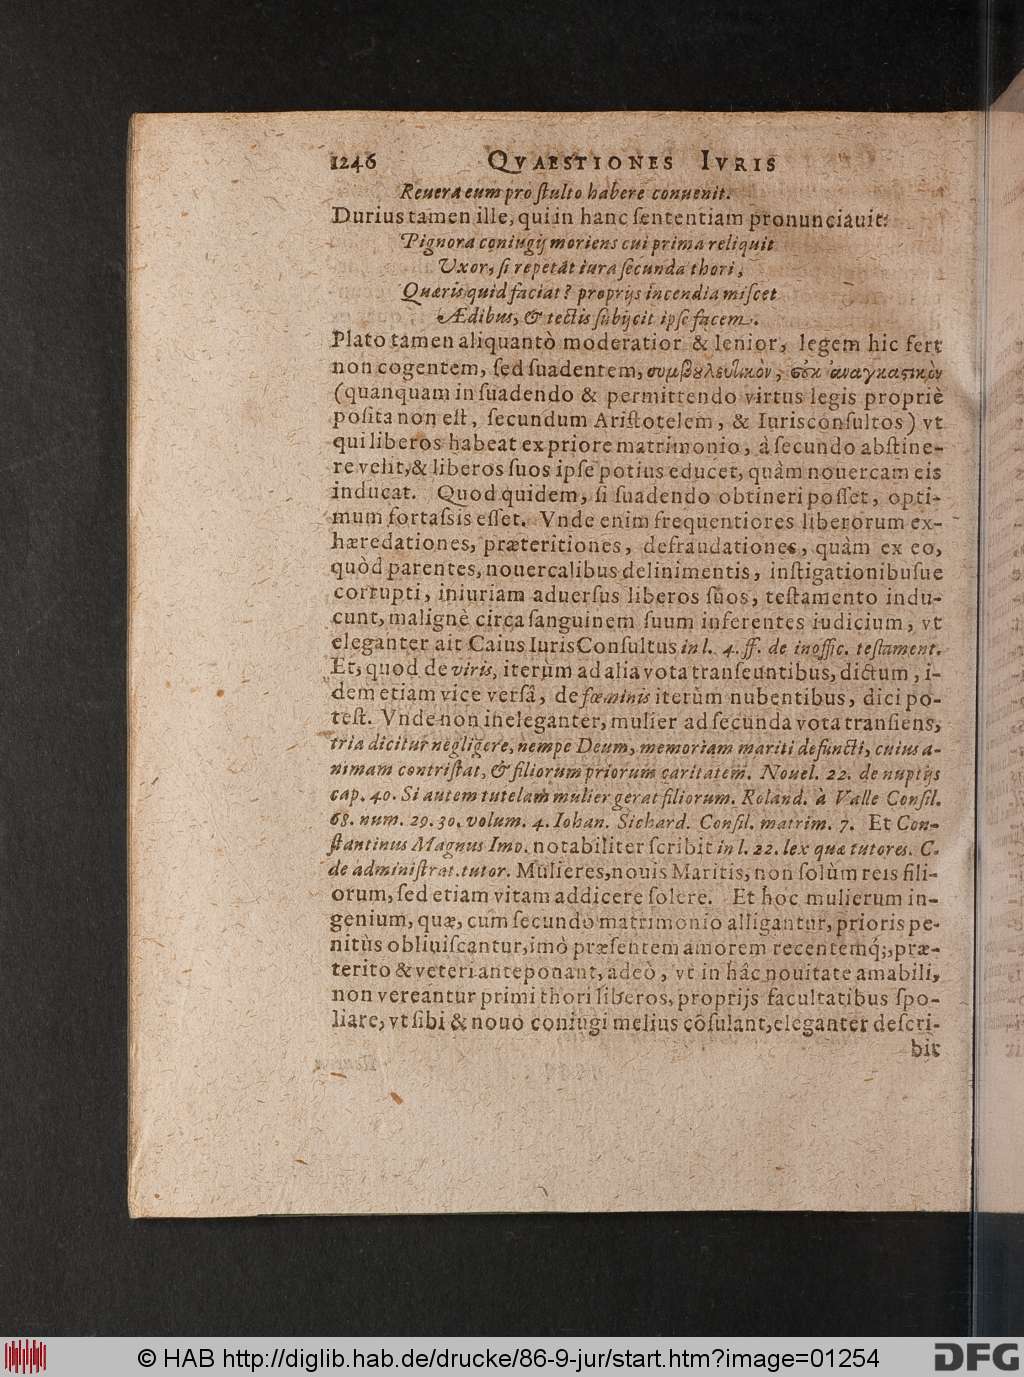 1246 QVAESTIONES IVRIS
Reuera eum pro ſtulto habere conuenit.
Durius tamen ille, qui in hanc ſententiam pronunciauit:
Pignora coniugij moriens cui prima reliquit
Uxor, ſi repetāt iura ſecunda thori,
Quæris quid faciat? proprijs incendia miſcet
Ædibus, & tectis ſubijcit ipſe facem.
Plato tamen aliquantò moderatior & lenior, legem hic fert
non cogentem, ſed ſuadentem, συμβουλευτικὸν, οὐκ ἀναγκαστικὸν
(quanquam in ſuadendo & permittendo virtus legis propriè
poſita non eſt, ſecundum Ariſtotelem, & Iurisconſultos) vt
qui liberos habeat ex priore matrimonio, à ſecundo abſtine-
re velit, & liberos ſuos ipſe potius educet, quàm nouercam eis
inducat. Quod quidem, ſi ſuadendo obtineri poſſet, opti-
mum fortaſsis eſſet. Vnde enim frequentiores liberorum ex-
hæredationes, præteritiones, defraudationes, quàm ex eo,
quòd parentes, nouercalibus delinimentis, inſtigationibuſue
corrupti, iniuriam aduerſus liberos ſuos, teſtamento indu-
cunt, malignè circa ſanguinem ſuum inferentes iudicium, vt
eleganter ait Caius IurisConſultus in l. 4. ff. de inoffic. teſtament.
Et, quod de viris, iterùm ad alia vota tranſeuntibus, dictum, i-
dem etiam vice verſâ, de fœminis iterùm nubentibus, dici po-
teſt. Vnde non ineleganter, mulier ad ſecunda vota tranſiens,
tria dicitur negligere, nempe Deum, memoriam mariti defuncti, cuius a-
nimam contriſtat, & filiorum priorum caritatem. Nouel. 22. de nuptijs
cap. 40. Si autem tutelam mulier gerat filiorum. Roland. à Valle Conſil.
68. num. 29. 30. volum. 4. Iohan. Sichard. Conſil. matrim. 7. Et Con-
ſtantinus Magnus Imp. notabiliter ſcribit in l. 22. lex quæ tutores. C.
de adminiſtrat. tutor. Mulieres, nouis Maritis, non ſolùm reis fili-
orum, ſed etiam vitam addicere ſolere. Et hoc mulierum in-
genium, quæ, cum ſecundo matrimonio alligantur, prioris pe-
nitùs obliuiſcantur, imò præſentem amorem recentemq́;, præ-
terito & veteri anteponant, adeò, vt in hâc nouitate amabili,
non vereantur primi thori liberos, proprijs facultatibus ſpo-
liare, vt ſibi & nouo coniugi melius cōſulant, eleganter deſcri-
bit
© HAB http://diglib.hab.de/drucke/86-9-jur/start.htm?image=01254
DFG